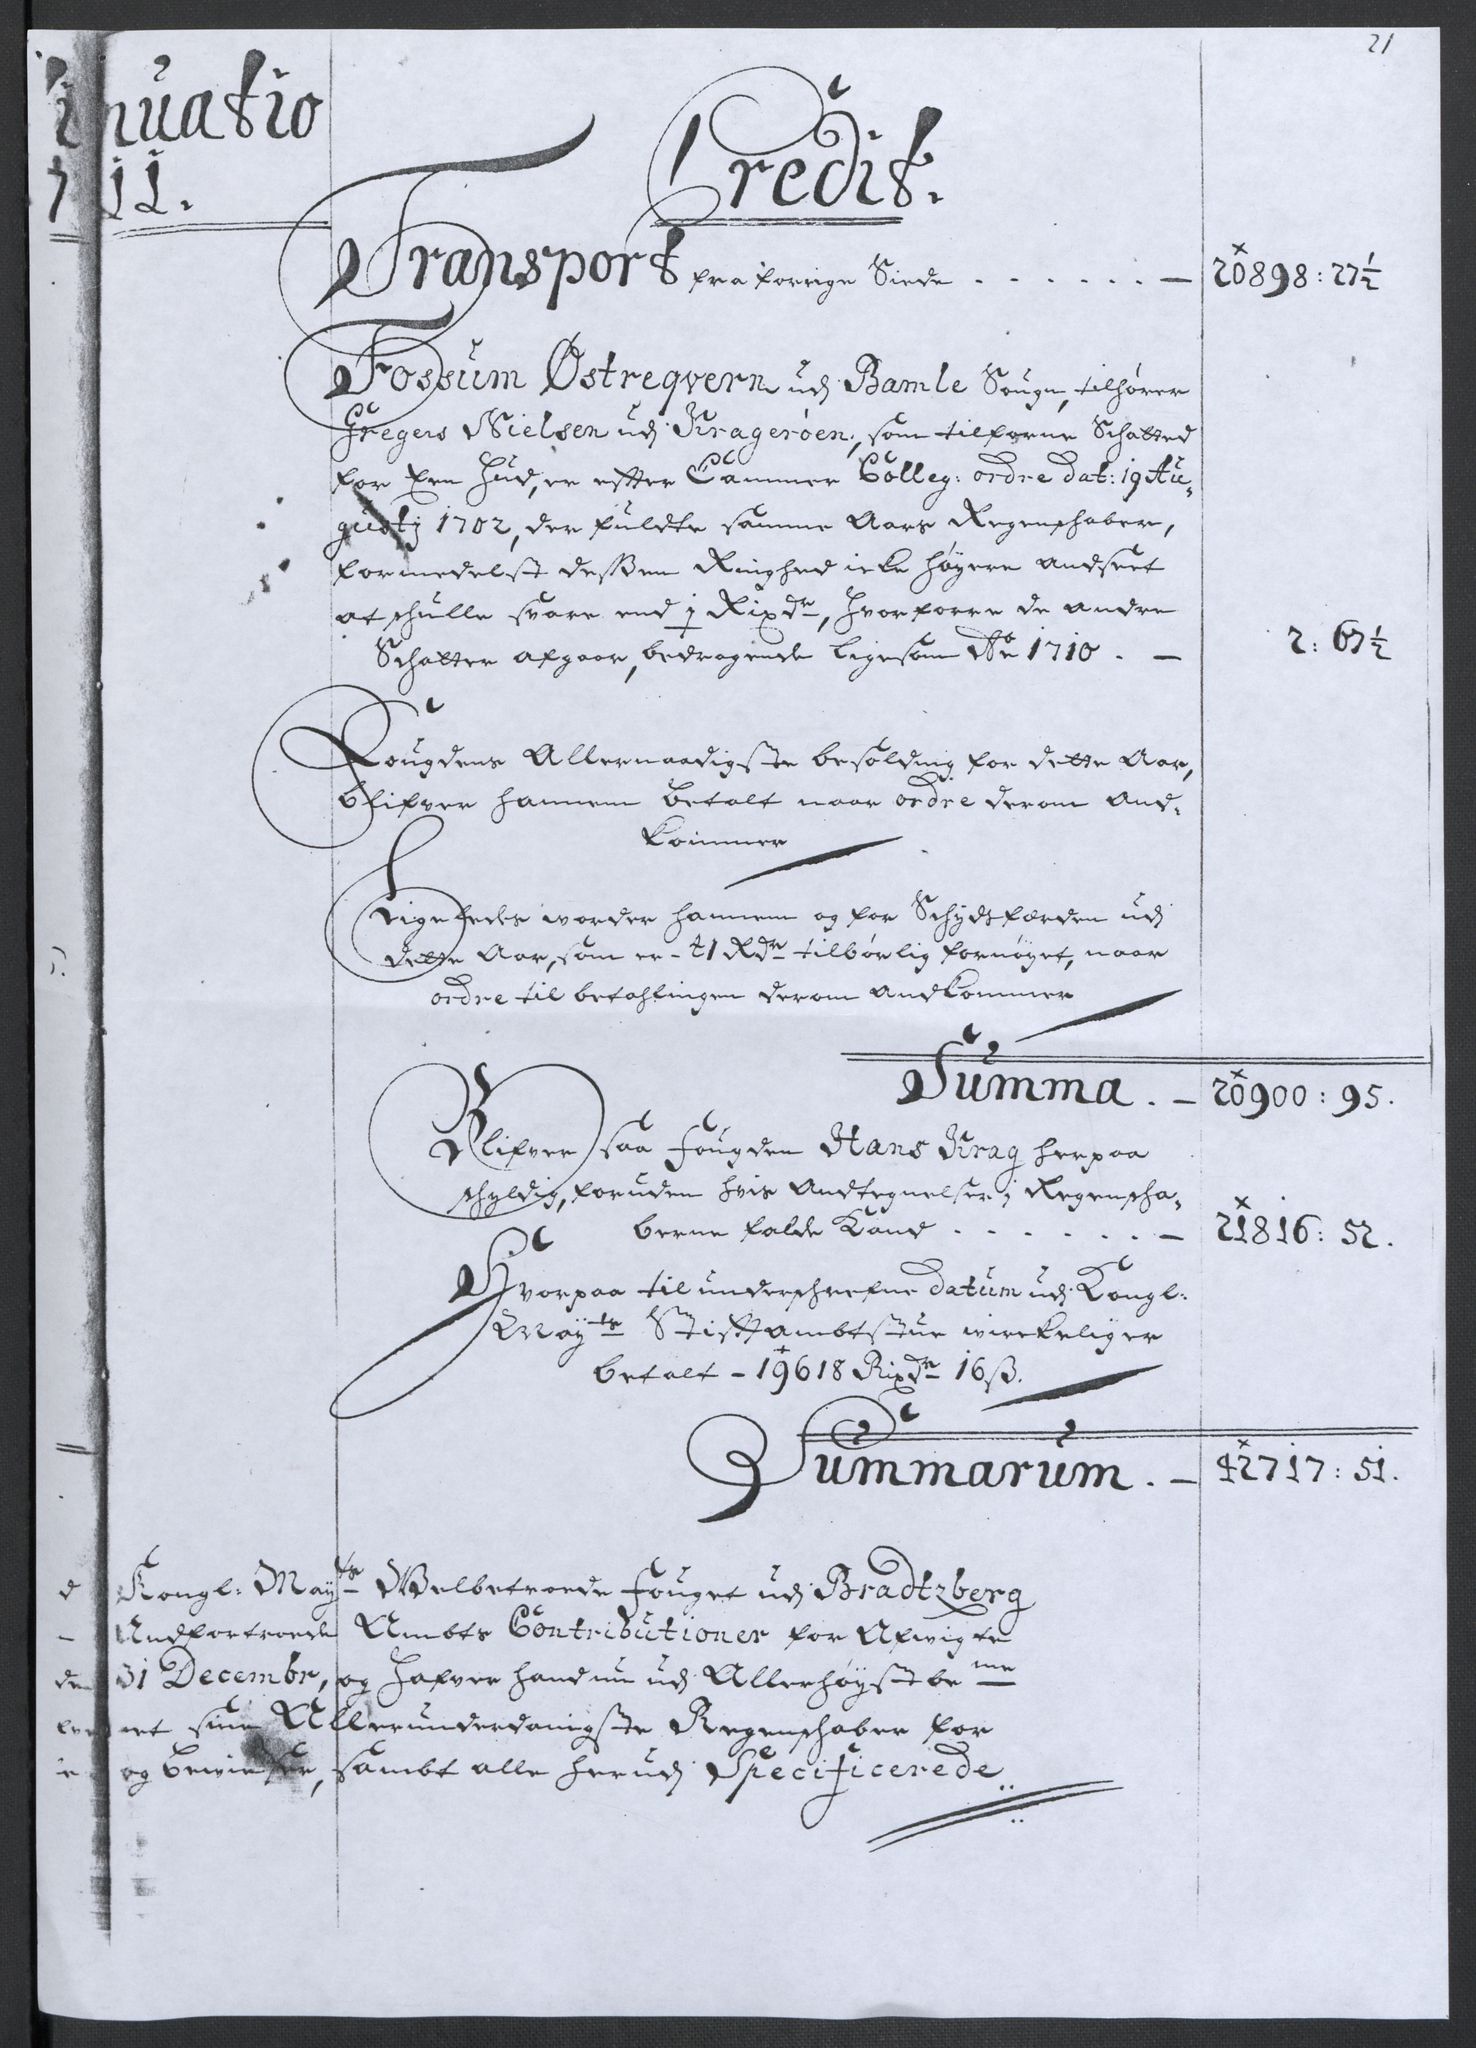 21
inuatio
1711.
Credit.
Transport fra forrige Siide . . . . . . — 20898 : 27½
Fossum Østreqvern udj Bamle Sougn, tilhører
Gregers Nielsen udj Kragerøen, som tilforne Schatted
for Een Hud, er effter Cammer Colleg: ordre dat: 19 Au-
gustj 1702, der fuldte samme Aars Regenschaber,
formedelst dessen Ringhed icke høyere andseet
at schulle svare end 1 Rixdr, hvorforre de andre
Schatter afgaar, bedragende ligesom Ao 1710 . — 2 : 67½
Fougdens Allernaadigste besolding for dette Aar,
blifver hannem betalt naar ordre derom and-
kommer
Ligeledes worder hannem og for Schydtsferden udj
dette Aar, som er - 41 Rdr tilbørlig fornøyet, naar
ordre til betahlingen derom andkommer
Summa . — 20900 : 95.
Blifver saa fougden Hans Krag herpaa
schyldig, foruden hvis Andtegnelser j Regenscha-
berne falde kand . . . . . . . — 21816 : 52.
Hvorpaa til underschrefne datum udj Kongl:
Mayts Stifftambtstue wirkeligen
betalt - 19618 Rixdr 16 ß.
Summarum . — 42717 : 51.
Kongl: Mayts Welbetroede fouget udj Bradtzberg
Andfortroede Ambts Contributioner for Afwigte
31 Decembr, og hafver hand nu udj Allerhøystbemte
sine Allerunderdanigste Regenschaber for
og bewiiser, sambt alle herudj Specificerede